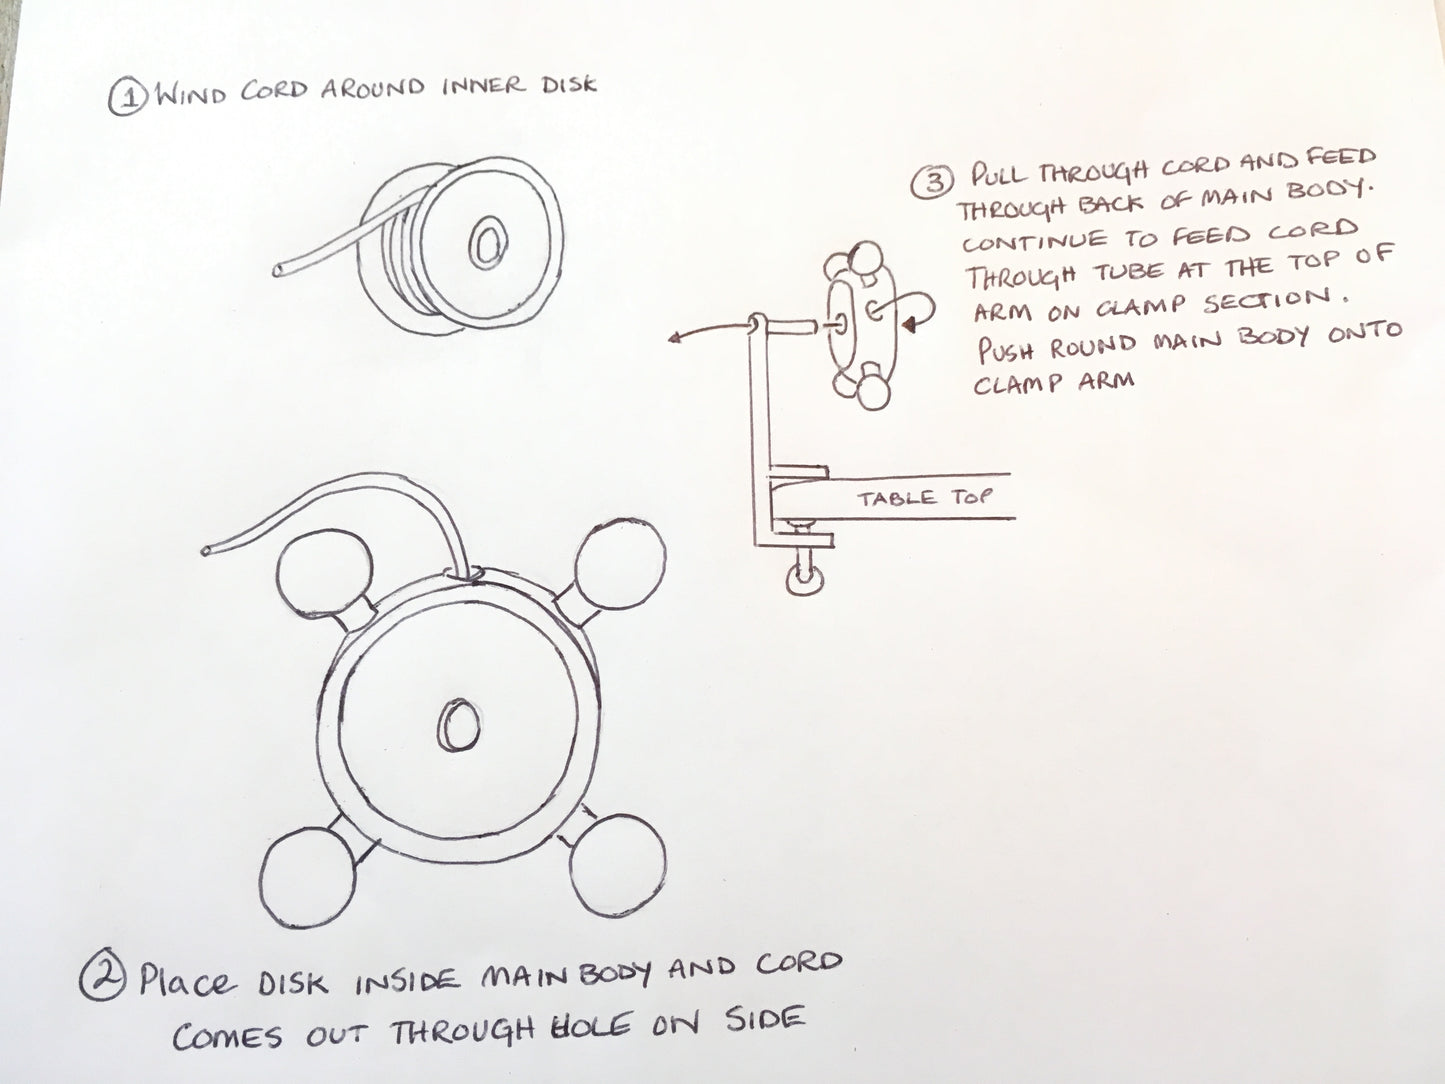 ① WIND CORD AROUND INNER DISK
② Place DISK INSIDE MAIN BODY AND CORD
COMES OUT THROUGH HOLE ON SIDE
③ PULL THROUGH CORD AND FEED
THROUGH BACK OF MAIN BODY.
CONTINUE TO FEED CORD
THROUGH TUBE AT THE TOP OF
ARM ON CLAMP SECTION.
PUSH ROUND MAIN BODY ONTO
CLAMP ARM
TABLE TOP